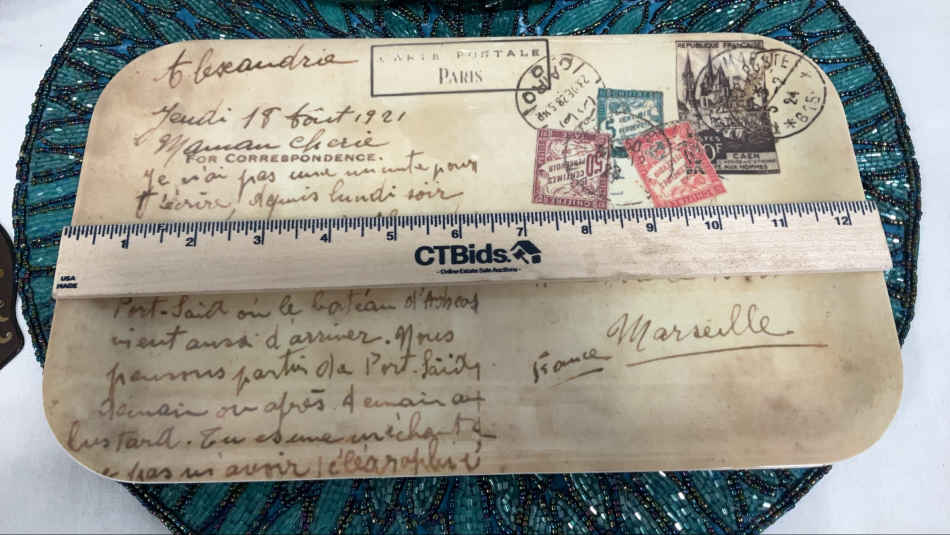 Alexandrie
CARTE POSTALE
PARIS
CAIRO
REPUBLIQUE FRANÇAISE
POSTE
24
CAEN
Jeudi 18 Août 1921
Maman cherie
FOR CORRESPONDENCE.
Je n'ai pas une minute pour
t'écrire, depuis lundi soir
50
CENTIMES
5
1 2 3 4 5 6 7 8 9 10 11 12
CTBids.
- Online Estate Sale Auctions -
USA
MADE
Port-Said où le bateau d'
vient aussi d'arriver. Nous
pensons partir de Port-Saïd
demain ou après demain au
+ tard. Tu es une méchante
pas m'avoir télégraphié
Marseille
France